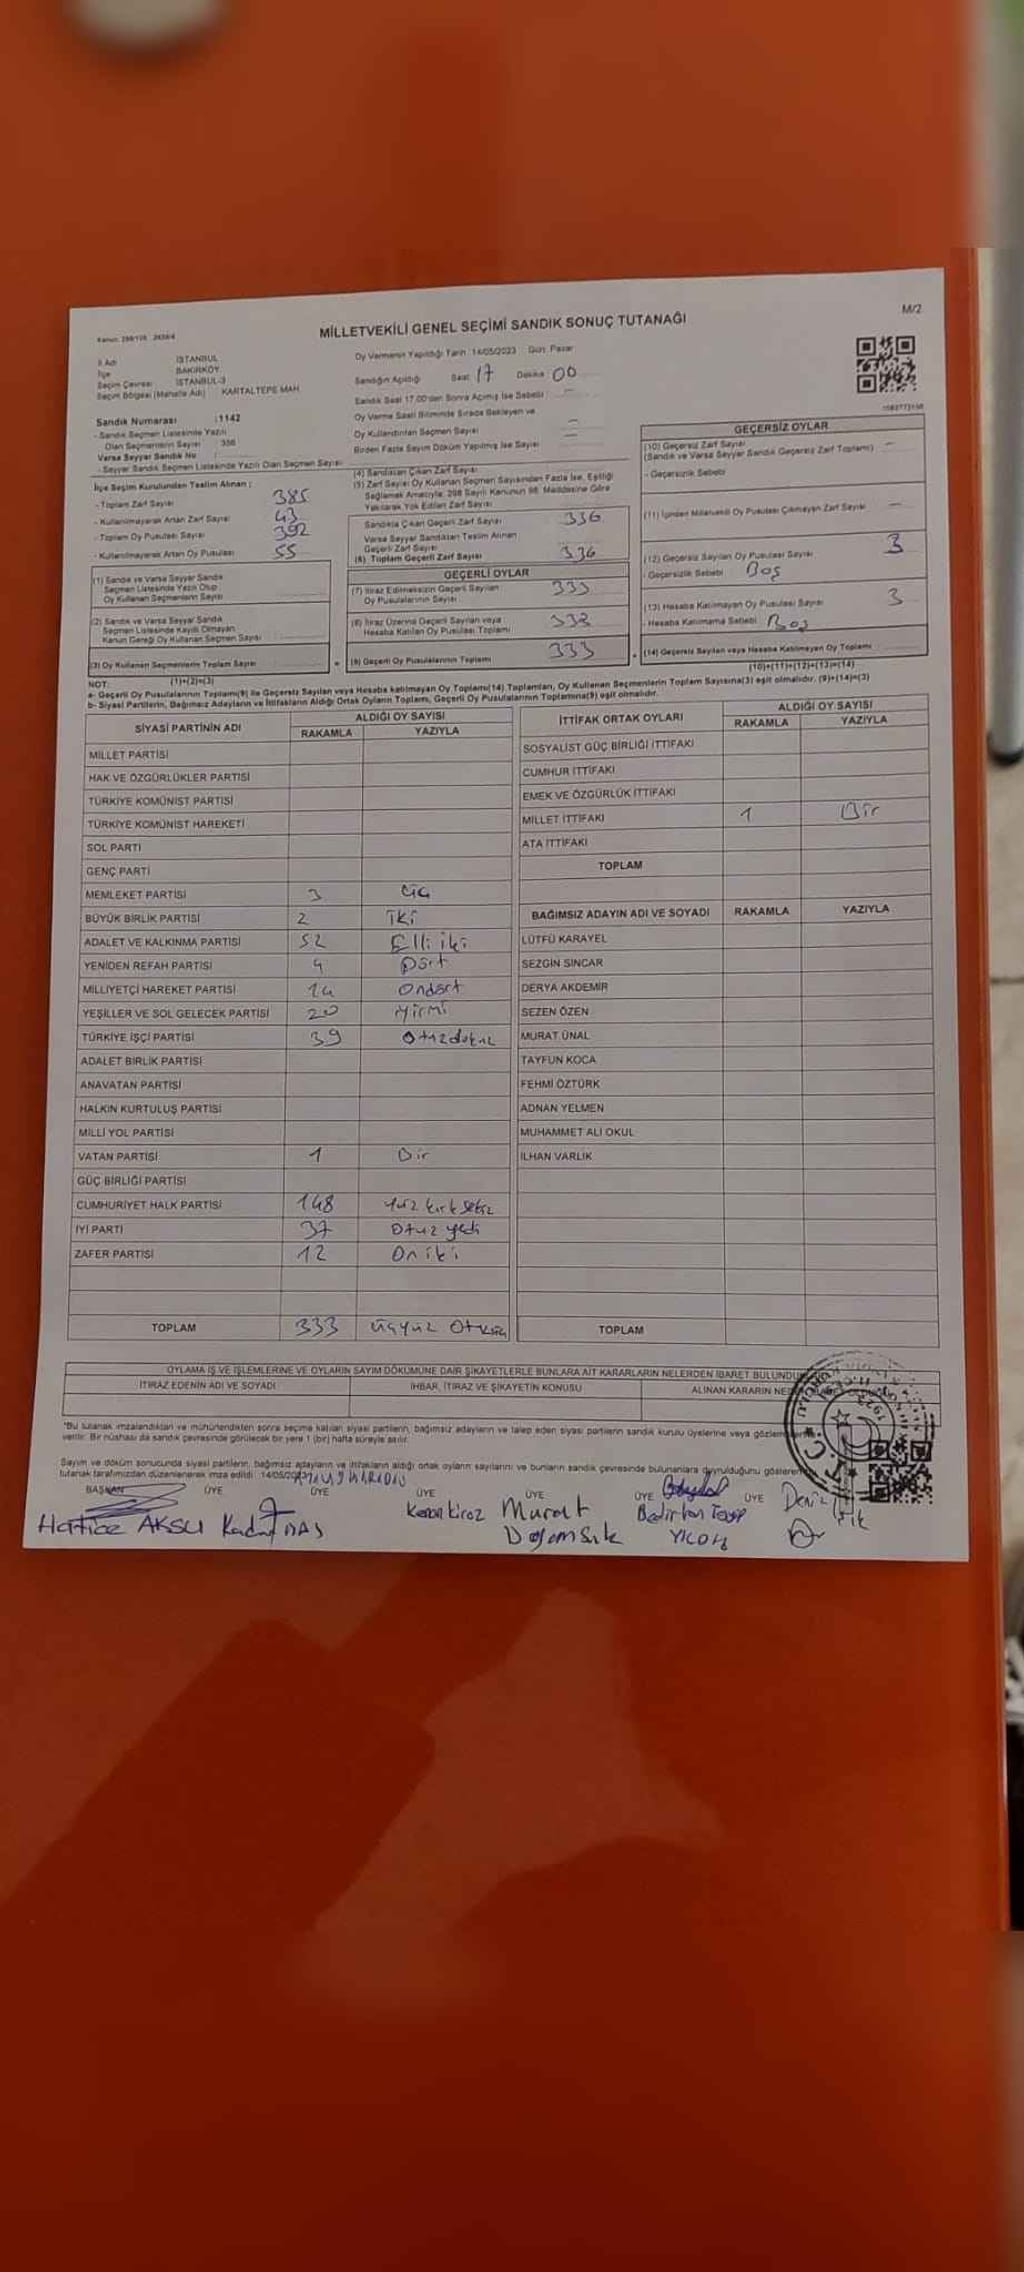 M/2
MİLLETVEKİLİ GENEL SEÇİMİ SANDIK SONUÇ TUTANAĞI
İl Adı : İSTANBUL
İlçe : BAKIRKÖY
Seçim Çevresi : İSTANBUL-3
Seçim Bölgesi (Mahalle Adı) : KARTALTEPE MAH.
Oy Vermenin Yapıldığı Tarih : 14/05/2023 Gün: Pazar
Sandığın Açıldığı Saat 17 Dakika 00
Sandık Saat 17.00'den Sonra Açılmış İse Sebebi :
Oy Verme Saati Bitiminde Sırada Bekleyen ve
Oy Kullandırılan Seçmen Sayısı
Birden Fazla Sayım Döküm Yapılmış İse Sayısı
Sandık Numarası : 1142
- Sandık Seçmen Listesinde Yazılı
Olan Seçmenlerin Sayısı
Varsa Seyyar Sandık No :
- Seyyar Sandık Seçmen Listesinde Yazılı Olan Seçmen Sayısı
İlçe Seçim Kurulundan Teslim Alınan ;
- Toplam Zarf Sayısı 385
- Kullanılmayarak Artan Zarf Sayısı 43
- Toplam Oy Pusulası Sayısı 392
- Kullanılmayarak Artan Oy Pusulası 55
(1) Sandık ve Varsa Seyyar Sandık
Seçmen Listesinde Yazılı Olup
Oy Kullanan Seçmenlerin Sayısı
(2) Sandık ve Varsa Seyyar Sandık
Seçmen Listesinde Kayıtlı Olmayan
Kanun Gereği Oy Kullanan Seçmen Sayısı
(3) Oy Kullanan Seçmenlerin Toplam Sayısı
(1)+(2)=(3)
(4) Sandıktan Çıkan Zarf Sayısı
(5) Zarf Sayısı Oy Kullanan Seçmen Sayısından Fazla İse, Eşitliği
Sağlamak Amacıyla, 298 Sayılı Kanunun 98. Maddesine Göre
Yakılarak Yok Edilen Zarf Sayısı
Sandıkta Çıkan Geçerli Zarf Sayısı 336
Varsa Seyyar Sandıktan Teslim Alınan
Geçerli Zarf Sayısı
(6) Toplam Geçerli Zarf Sayısı 336
GEÇERLİ OYLAR
(7) İtiraz Edilmeksizin Geçerli Sayılan
Oy Pusulalarının Sayısı 333
(8) İtiraz Üzerine Geçerli Sayılan veya
Hesaba Katılan Oy Pusulası Toplamı
(9) Geçerli Oy Pusulalarının Toplamı 333
GEÇERSİZ OYLAR
(10) Geçersiz Zarf Sayısı
(Sandık ve Varsa Seyyar Sandık Geçersiz Zarf Toplamı)
- Geçersizlik Sebebi
(11) İçinden Milletvekili Oy Pusulası Çıkmayan Zarf Sayısı
(12) Geçersiz Sayılan Oy Pusulası Sayısı 3
- Geçersizlik Sebebi Boş
(13) Hesaba Katılmayan Oy Pusulası Sayısı 3
- Hesaba Katılmama Sebebi Boş
(14) Geçersiz Sayılan veya Hesaba Katılmayan Oy Toplamı
(10)+(11)+(12)+(13)=(14)
NOT:
a- Geçerli Oy Pusulalarının Toplamı(9) ile Geçersiz Sayılan veya Hesaba katılmayan Oy Toplamı(14) Toplamları, Oy Kullanan Seçmenlerin Toplam Sayısına(3) eşit olmalıdır. (9)+(14)=(3)
b- Siyasi Partilerin, Bağımsız Adayların ve İttifakların Aldığı Ortak Oyların Toplamı, Geçerli Oy Pusulalarının Toplamına(9) eşit olmalıdır.
SİYASİ PARTİNİN ADI ALDIĞI OY SAYISI
RAKAMLA YAZIYLA
MİLLET PARTİSİ
HAK VE ÖZGÜRLÜKLER PARTİSİ
TÜRKİYE KOMÜNİST PARTİSİ
TÜRKİYE KOMÜNİST HAREKETİ
SOL PARTİ
GENÇ PARTİ
MEMLEKET PARTİSİ 3
BÜYÜK BİRLİK PARTİSİ 2 iki
ADALET VE KALKINMA PARTİSİ 52 Elli iki
YENİDEN REFAH PARTİSİ 4 Dört
MİLLİYETÇİ HAREKET PARTİSİ 14 Ondört
YEŞİLLER VE SOL GELECEK PARTİSİ 20 Yirmi
TÜRKİYE İŞÇİ PARTİSİ 39 Otuzdokuz
ADALET BİRLİK PARTİSİ
ANAVATAN PARTİSİ
HALKIN KURTULUŞ PARTİSİ
MİLLİ YOL PARTİSİ
VATAN PARTİSİ 1 Bir
GÜÇ BİRLİĞİ PARTİSİ
CUMHURİYET HALK PARTİSİ 148 Yüz kırk sekiz
İYİ PARTİ 37 Otuz yedi
ZAFER PARTİSİ 12 On iki
TOPLAM 333
İTTİFAK ORTAK OYLARI ALDIĞI OY SAYISI
RAKAMLA YAZIYLA
SOSYALİST GÜÇ BİRLİĞİ İTTİFAKI
CUMHUR İTTİFAKI
EMEK VE ÖZGÜRLÜK İTTİFAKI
MİLLET İTTİFAKI 1 Bir
ATA İTTİFAKI
TOPLAM
BAĞIMSIZ ADAYIN ADI VE SOYADI RAKAMLA YAZIYLA
LÜTFÜ KARAYEL
SEZGİN SİNCAR
DERYA AKDEMİR
SEZEN ÖZEN
MURAT ÜNAL
TAYFUN KOCA
FEHMİ ÖZTÜRK
ADNAN YELMEN
MUHAMMET ALİ OKUL
İLHAN VARLIK
TOPLAM
OYLAMA İŞ VE İŞLEMLERİNE VE OYLARIN SAYIM DÖKÜMÜNE DAİR ŞİKAYETLERLE BUNLARA AİT KARARLARIN NELERDEN İBARET BULUNDU
İTİRAZ EDENİN ADI VE SOYADI İHBAR, İTİRAZ VE ŞİKAYETİN KONUSU ALINAN KARARIN NE
*Bu tutanak imzalandıktan ve mühürlendikten sonra seçime katılan siyasi partilerin, bağımsız adayların ve talep eden siyasi partilerin sandık kurulu üyelerine veya
verilir. Bir nüshası da sandık çevresinde görülecek bir yere 1 (bir) hafta süreyle asılır.
Sayım ve döküm sonucunda siyasi partilerin, bağımsız adayların ve ittifakların aldığı ortak oyların sayılarını ve bunların sandık çevresinde bulunanlara duyrulduğunu gösteren
tutanak tarafımızdan düzenlenerek imza edildi. 14/05/2023
BAŞKAN ÜYE ÜYE ÜYE ÜYE ÜYE ÜYE
Hatice AKSU Kenan Kiraz Murat
T.C.